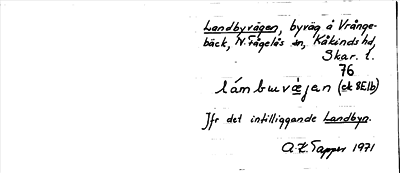 Landbyvägen, byväg å Vrånge-
bäck, N. Fågelås sn, Kåkinds hd,
Skar. l.
76
lámbuvä̀jen (ek 8E1b)
Jfr det intilliggande Landbyn.
A.K. Tapper 1971